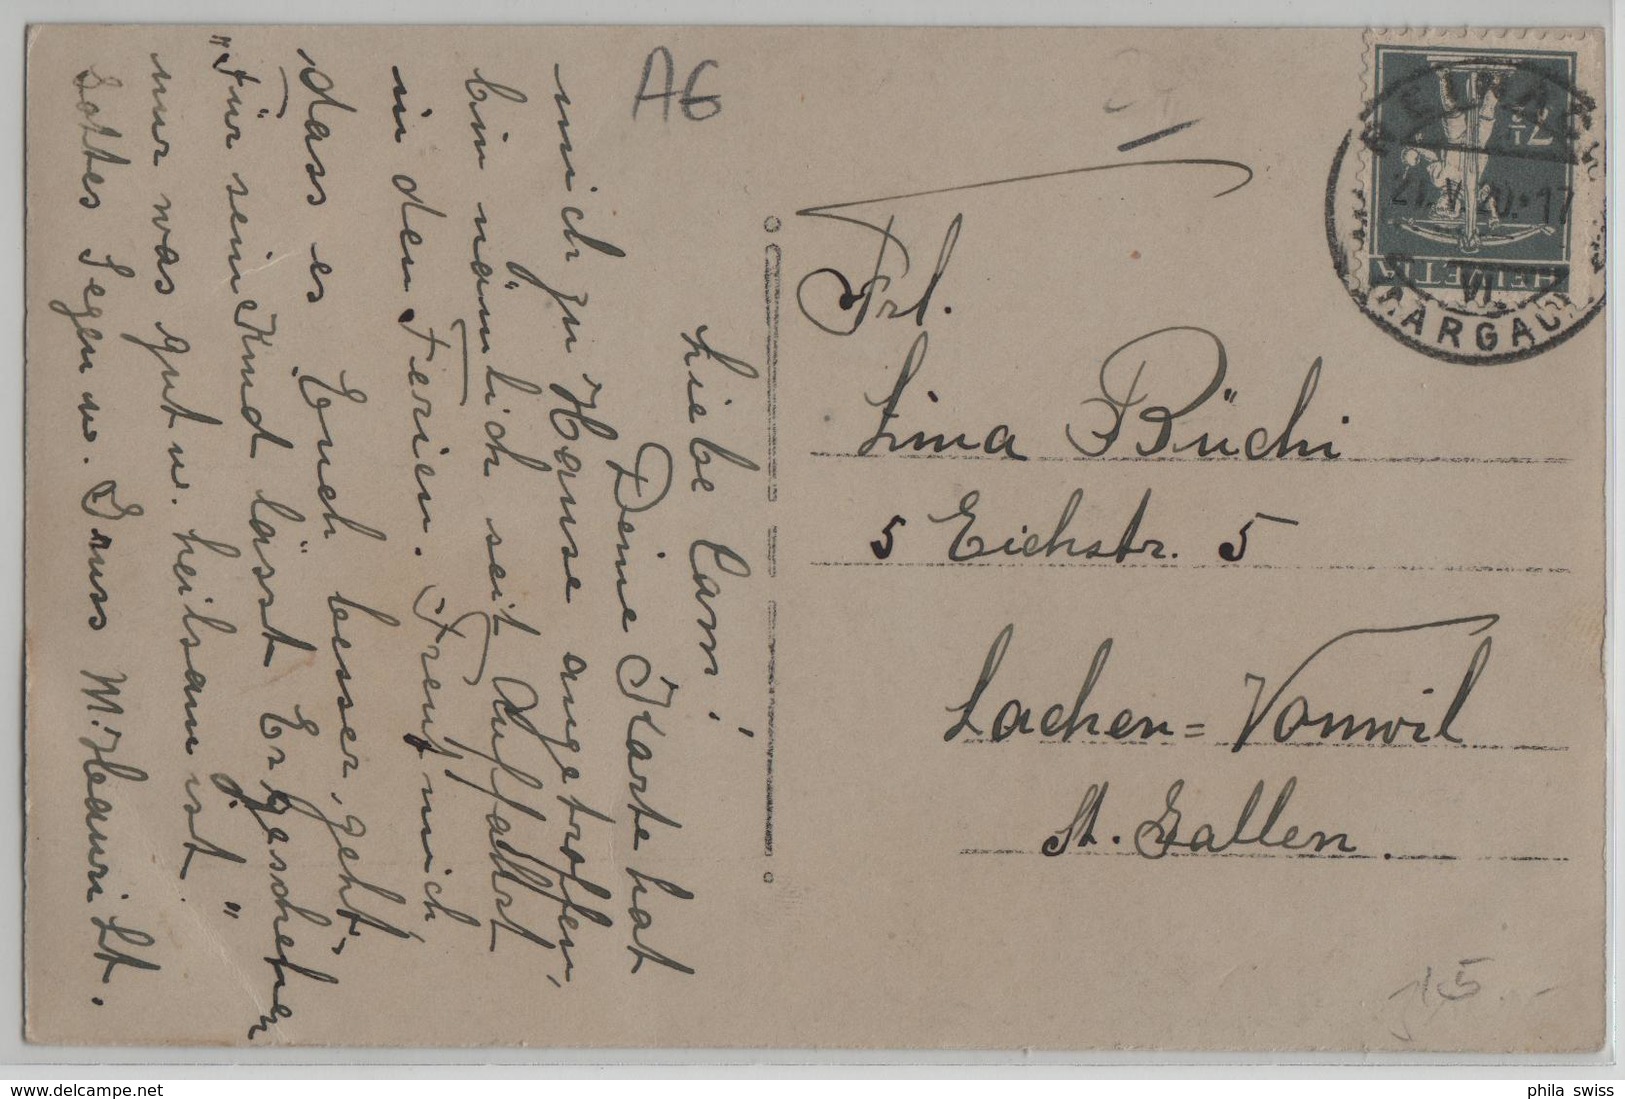 Liebe Cam!
Deine Karte hat
mich zu Hause angetroffen,
bin nämlich seit Auffahrt
in den Ferien. Freut mich
dass es Euch besser geht.
"Für sein Kind lässt Er geschehen
nur was gut u. heilsam ist."
Gottes Segen u. Gruss M. Hauri Lt.
A6
Frl.
Lina Büchi
5 Eichstr. 5
Lachen=Vonwil
St. Gallen.
REINACH
21.V.20.17
VI.
(AARGAU)
HELVETIA
7½
15.-
phila swiss